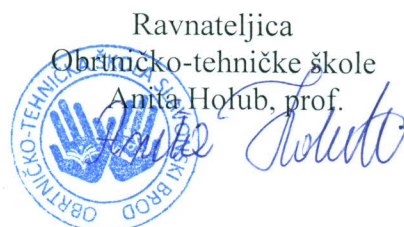 Ravnateljica
Obrtničko-tehničke škole
Anita Holub, prof.
OBRTNIČKO-TEHNIČKA ŠKOLA SLAVONSKI BROD
Anita Holub